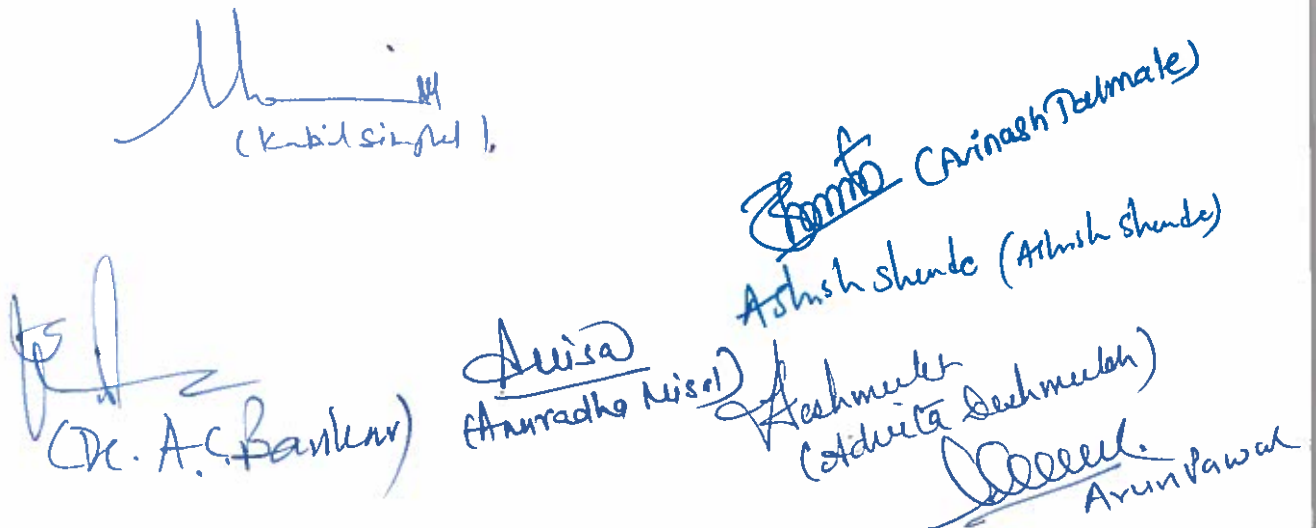 (Kabil Singhel).
(Avinash Talmale)
Ashish Shende (Ashish Shende)
(Dr. A.C. Bankar)
(Anuradha Nisal)
Deshmukh
(Adwita Deshmukh)
Arun Pawar